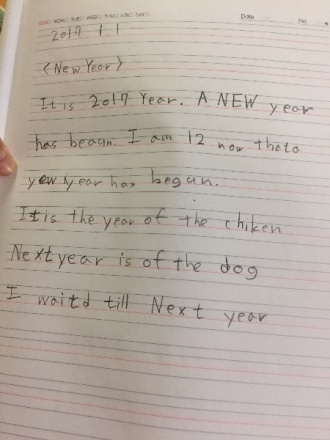 Date
2017 1 1
<New Year>
It is 2017 Year. A NEW year
has beagun. I am 12 now thata
yew year has begun.
It is the year of the chiken
Next year is of the dog
I waitd till Next year